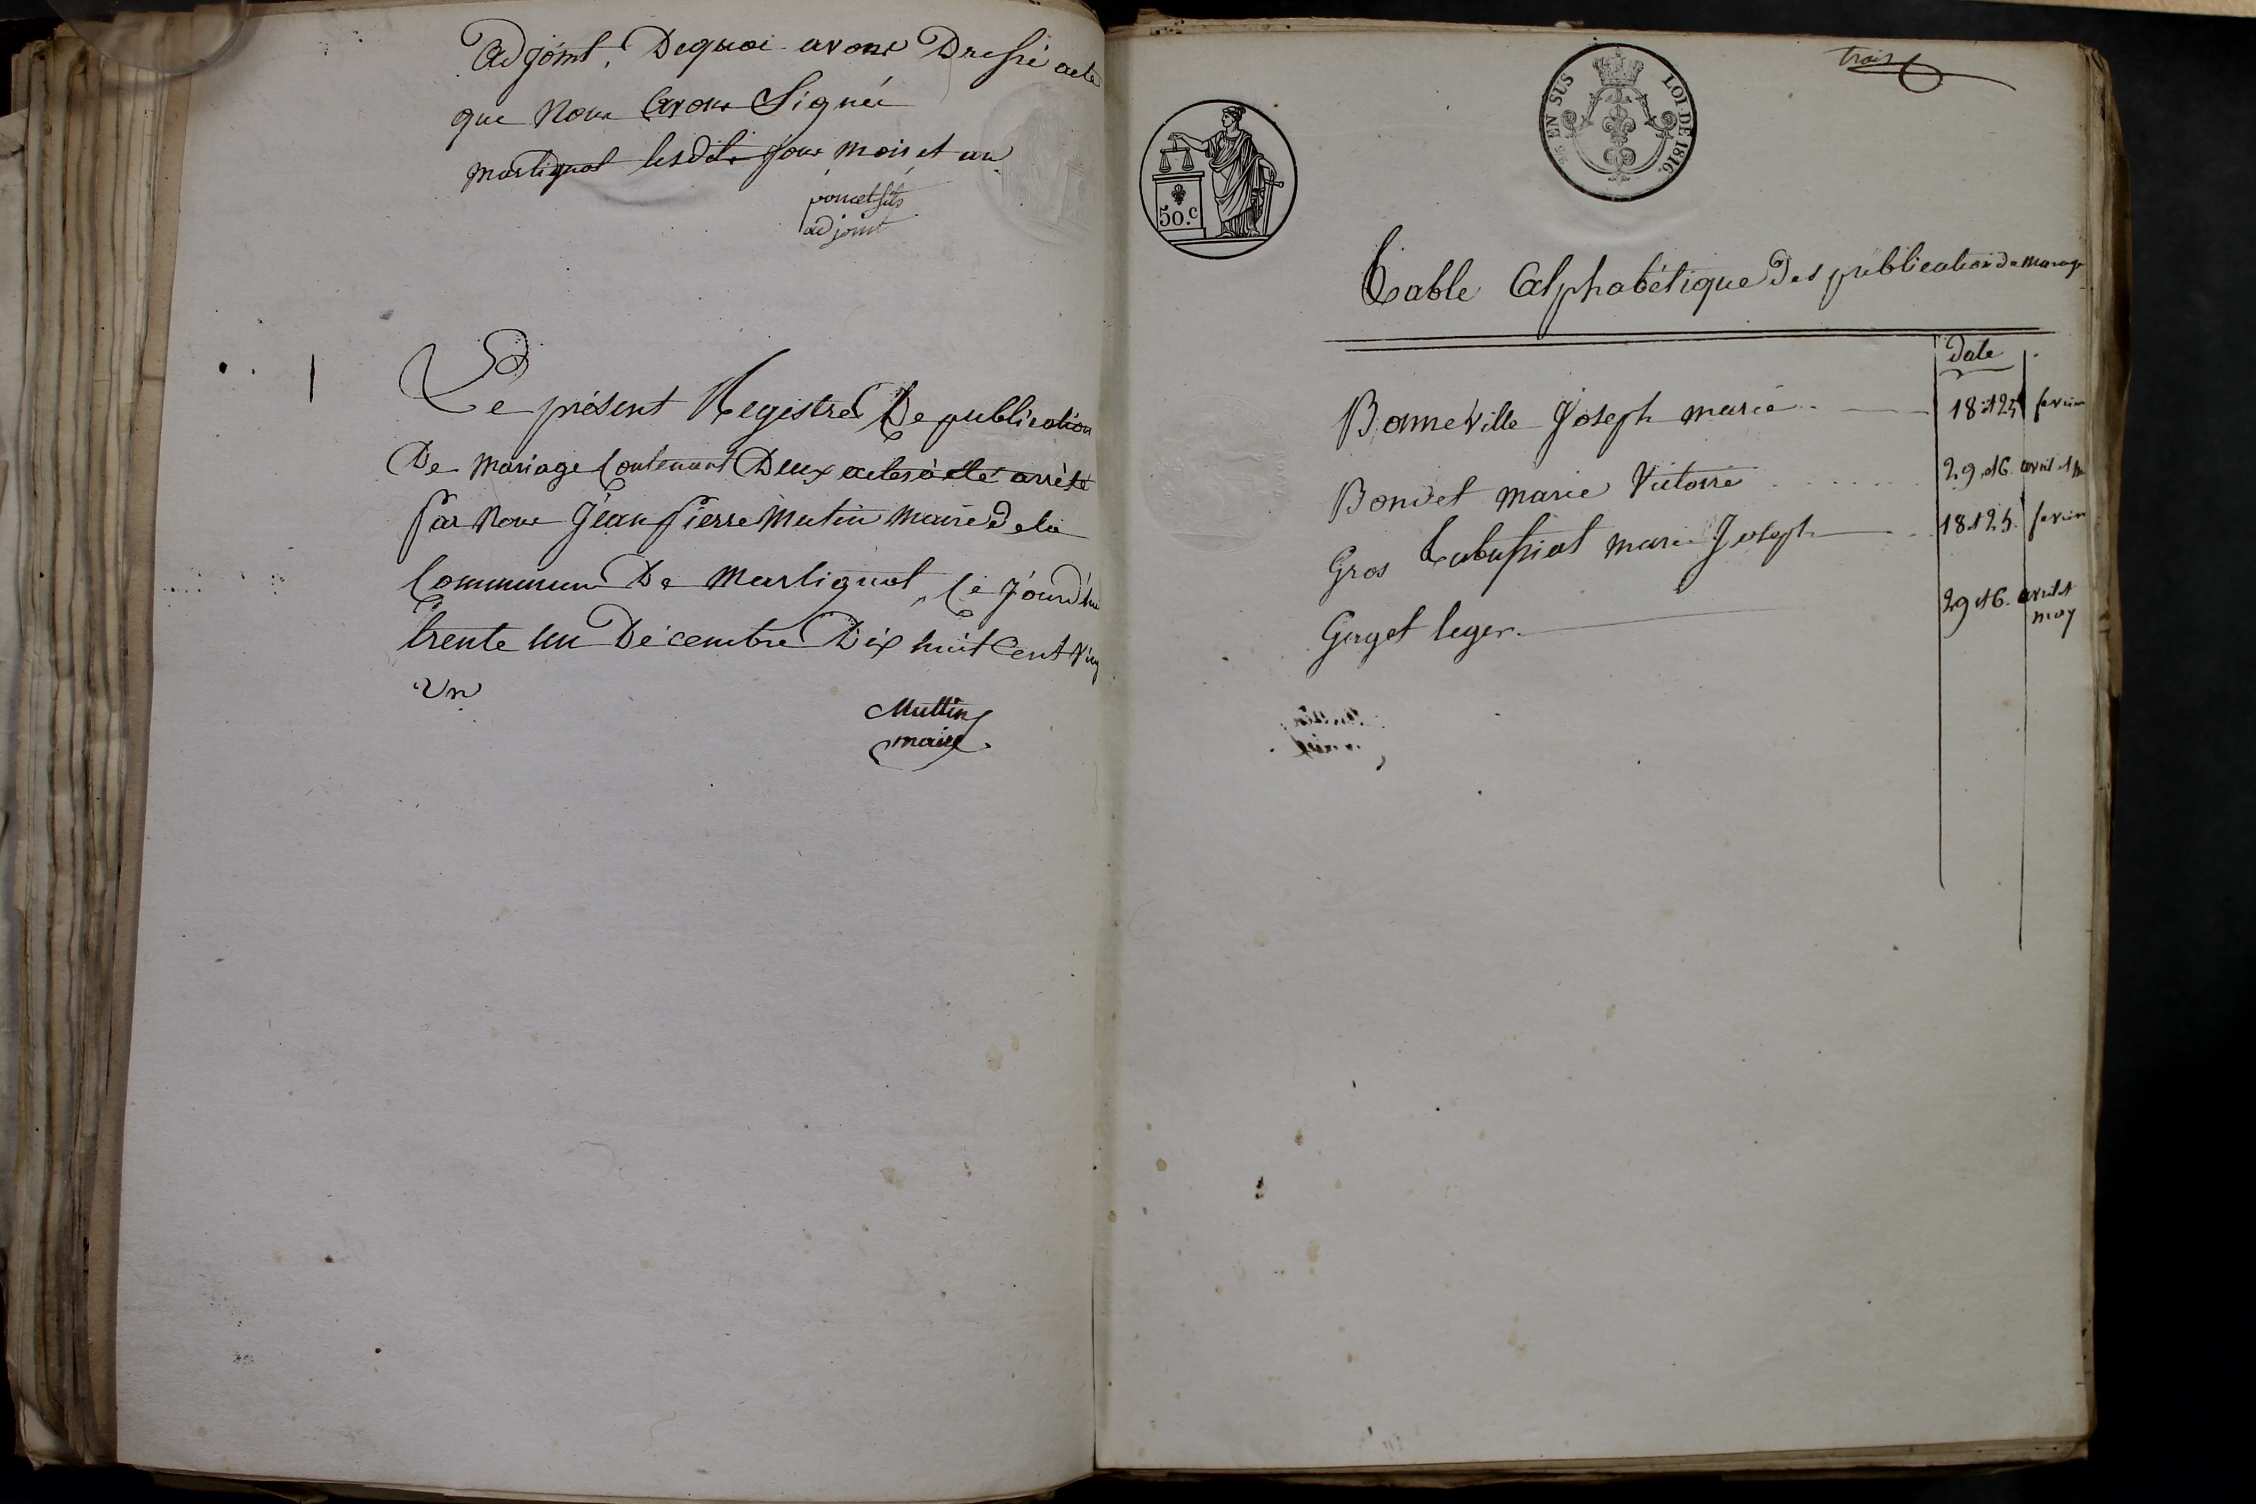 adjoint, Dequoi avons Dressé acte
que Nous avons Signéé
Martignat lesdits jour mois et an
poncet fils
adjoint
Le présent Registre De publication
De Mariage Contenant Deux actes à été arrèté
par Nous Jéan pierre Mutin Maire de la
Commune De Martignat, Ce jourd'hui
trente un Décembre Dix huit Cent Ving
Un
Muttin
maire
trois
EN SUS LOI DE 1816.
50.c
Table Alphabétique Des publication de Mariage
Date
Bonneville Joseph marie 18 et 25 fevrier
Bondet marie Victoire 29 et 6. avril et
Gros Tabussiat marie Joseph 18 et 25. fevrier
Guget leger. 29 et 6. avril et
may